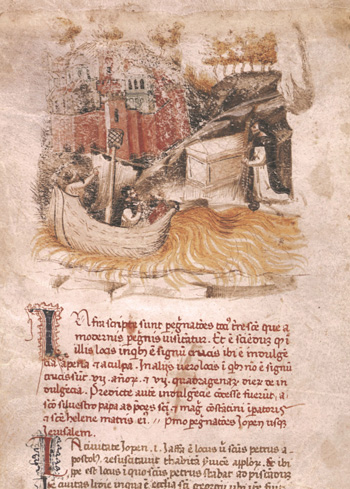 Infra scripte sunt peg̃natões toc̃ t̃re scẽ que a
modernis peg̃nis visitatur. Et ẽ sciẽdũ q̃ ĩ
illis locis inqb9 ẽ signũ crucis ibi ẽ indulgẽ
cia apena ⁊ a culpa. In alijs uero locis ĩ qb9 nõ ẽ signũ
crucis sũt .vij. añor. ⁊ .vij. quadragenar. dier de in
dulgẽcia. Predicte autẽ indulgẽcie cõcesse fuerũt. a
sco siluestro papa ad p̃ces sc̃i ⁊ mag̃. cõstãtini ĩpatoris
⁊ scẽ helene matris ei. Primo peg̃natões Jopen usq3
Jerusalem.
In ciuitate Jopen .i. Jaffa ẽ locus ũ scũs petrus a
postol9 resuscitauit thabitã suicẽ aplor. Et ibi
ꝓpe est locus ĩ quo scũs petrus stabat ad piscãdũ